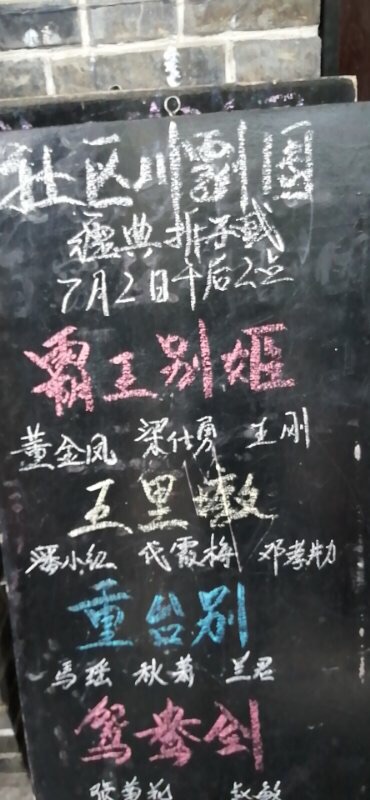 社区川剧团
经典折子戏
7月2日午后2点
霸王别姬
董金凤 梁仕勇 王刚
五里墩
潘小红 代霞梅 邓孝勤
重台别
马瑶 秋菊 兰君
鸳鸯剑
张菊花 敏